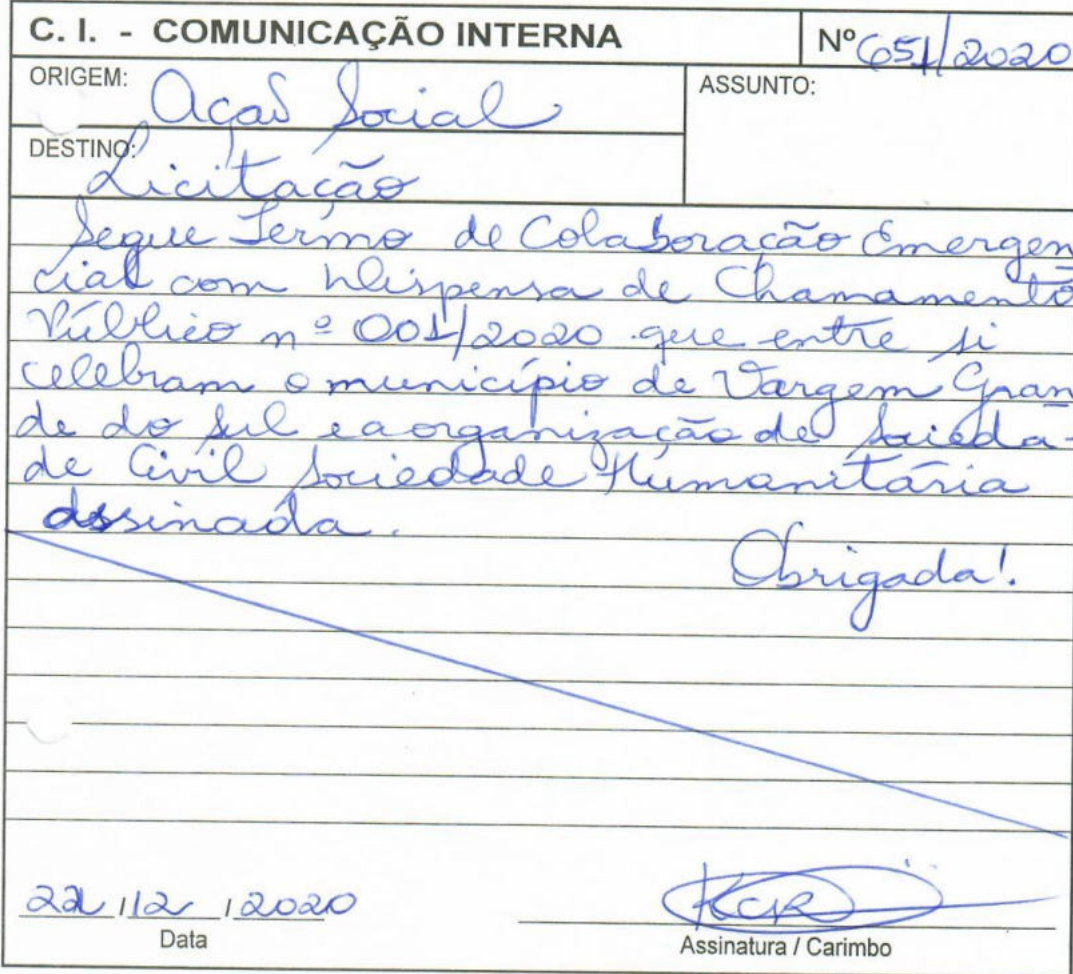 C. I. - COMUNICAÇÃO INTERNA
Nº 651/2020
ORIGEM: Ação Social
ASSUNTO:
DESTINO: Licitação
Segue Termo de Colaboração Emergen
cial com Dispensa de Chamamento
Público nº 001/2020 que entre si
celebram o município de Vargem Gran
de do Sul e a organização de Socieda-
de Civil Sociedade Humanitária
assinada.
Obrigada!
22/12/2020
Data
Assinatura / Carimbo